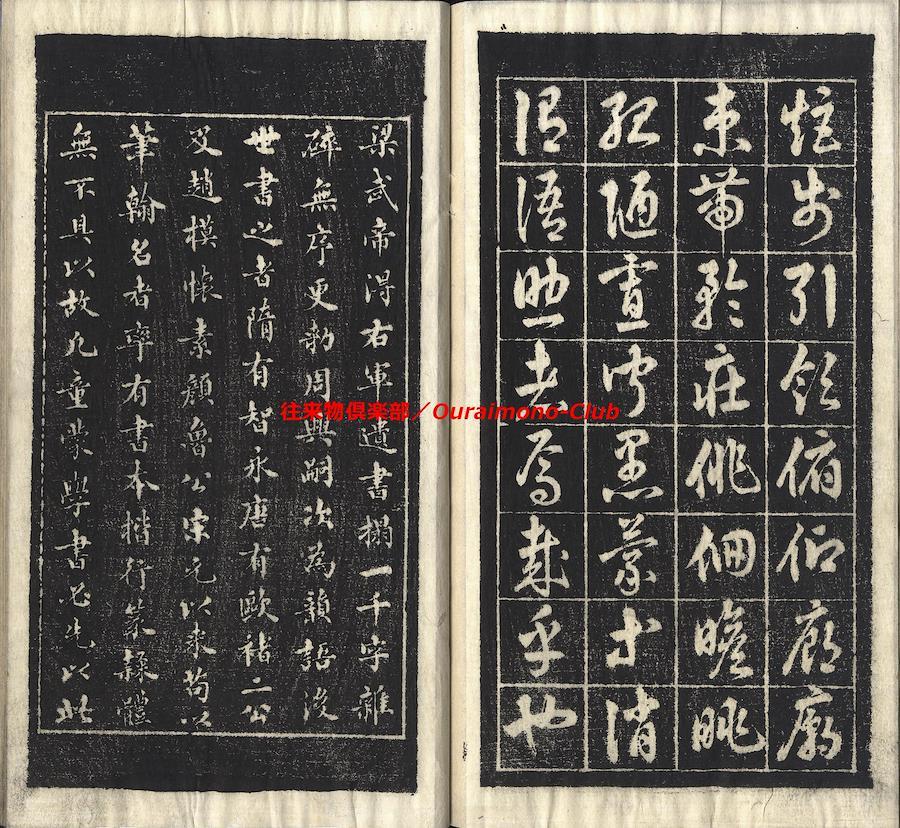 矩步引領俯仰廊廟
束帶矜莊徘徊瞻眺
孤陋寡聞愚蒙等誚
謂語助者焉哉乎也
梁武帝得右軍遺書搨一千字雜
碎無序更勅周興嗣次為韻語後
世書之者隋有智永唐有歐褚二公
及趙模懷素顏魯公宋元以來苟以
筆翰名者率有書本楷行篆隸體
無不具以故凡童蒙學書必先以此
往来物倶楽部／Ouraimono-Club